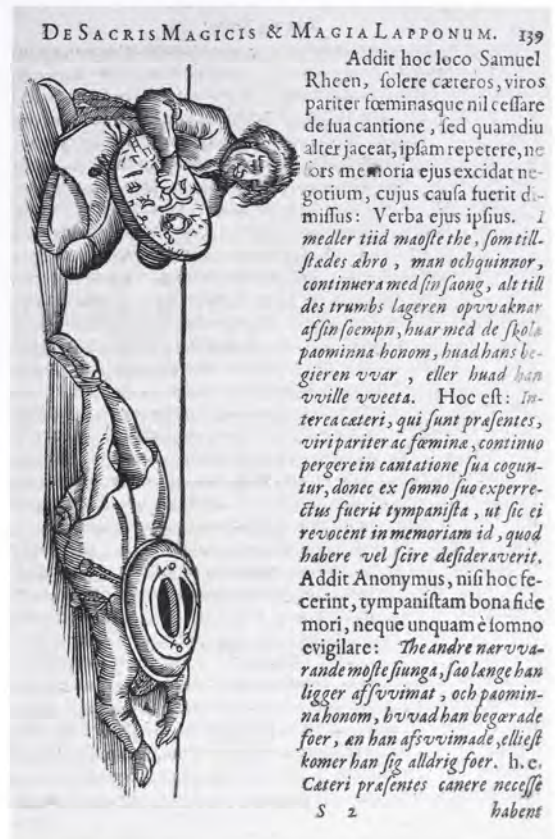 DE SACRIS MAGICIS & MAGIA LAPPONUM. 139
Addit hoc loco Samuel
Rheen, ſolere cæteros, viros
pariter fœminasque nil ceſſare
de ſua cantione, ſed quamdiu
alter jaceat, ipſam repetere, ne
ſors memoria ejus excidat ne-
gotium, cujus cauſa fuerit di-
miſſus: Verba ejus ipſius. I
medler tiid maoſte the, ſom till-
ſtædes æhro, man ochquinnor,
continuera med ſin ſaong, alt till
des trumbs lageren opvvaknar
af ſin ſoempn, huar med de ſkola
paominna honom, huad hans be-
gieren vvar, eller huad han
vville vveeta. Hoc eſt: In-
terea cæteri, qui ſunt præſentes,
viri pariter ac fœminæ, continuo
pergere in cantatione ſua cogun-
tur, donec ex ſomno ſuo experre-
ctus fuerit tympaniſta, ut ſic ei
revocent in memoriam id, quod
habere vel ſcire deſideraverit.
Addit Anonymus, niſi hoc fe-
cerint, tympaniſtam bona fide
mori, neque unquam è ſomno
evigilare: The andre nærvva-
rande moſte ſiunga, ſao længe han
ligger afſvvimat, och paomin-
na honom, hvvad han begærade
foer, æn han afsvvimade, ellieſt
komer han ſig alldrig foer. h. e.
Cæteri præſentes canere neceſſe
S 2 habent